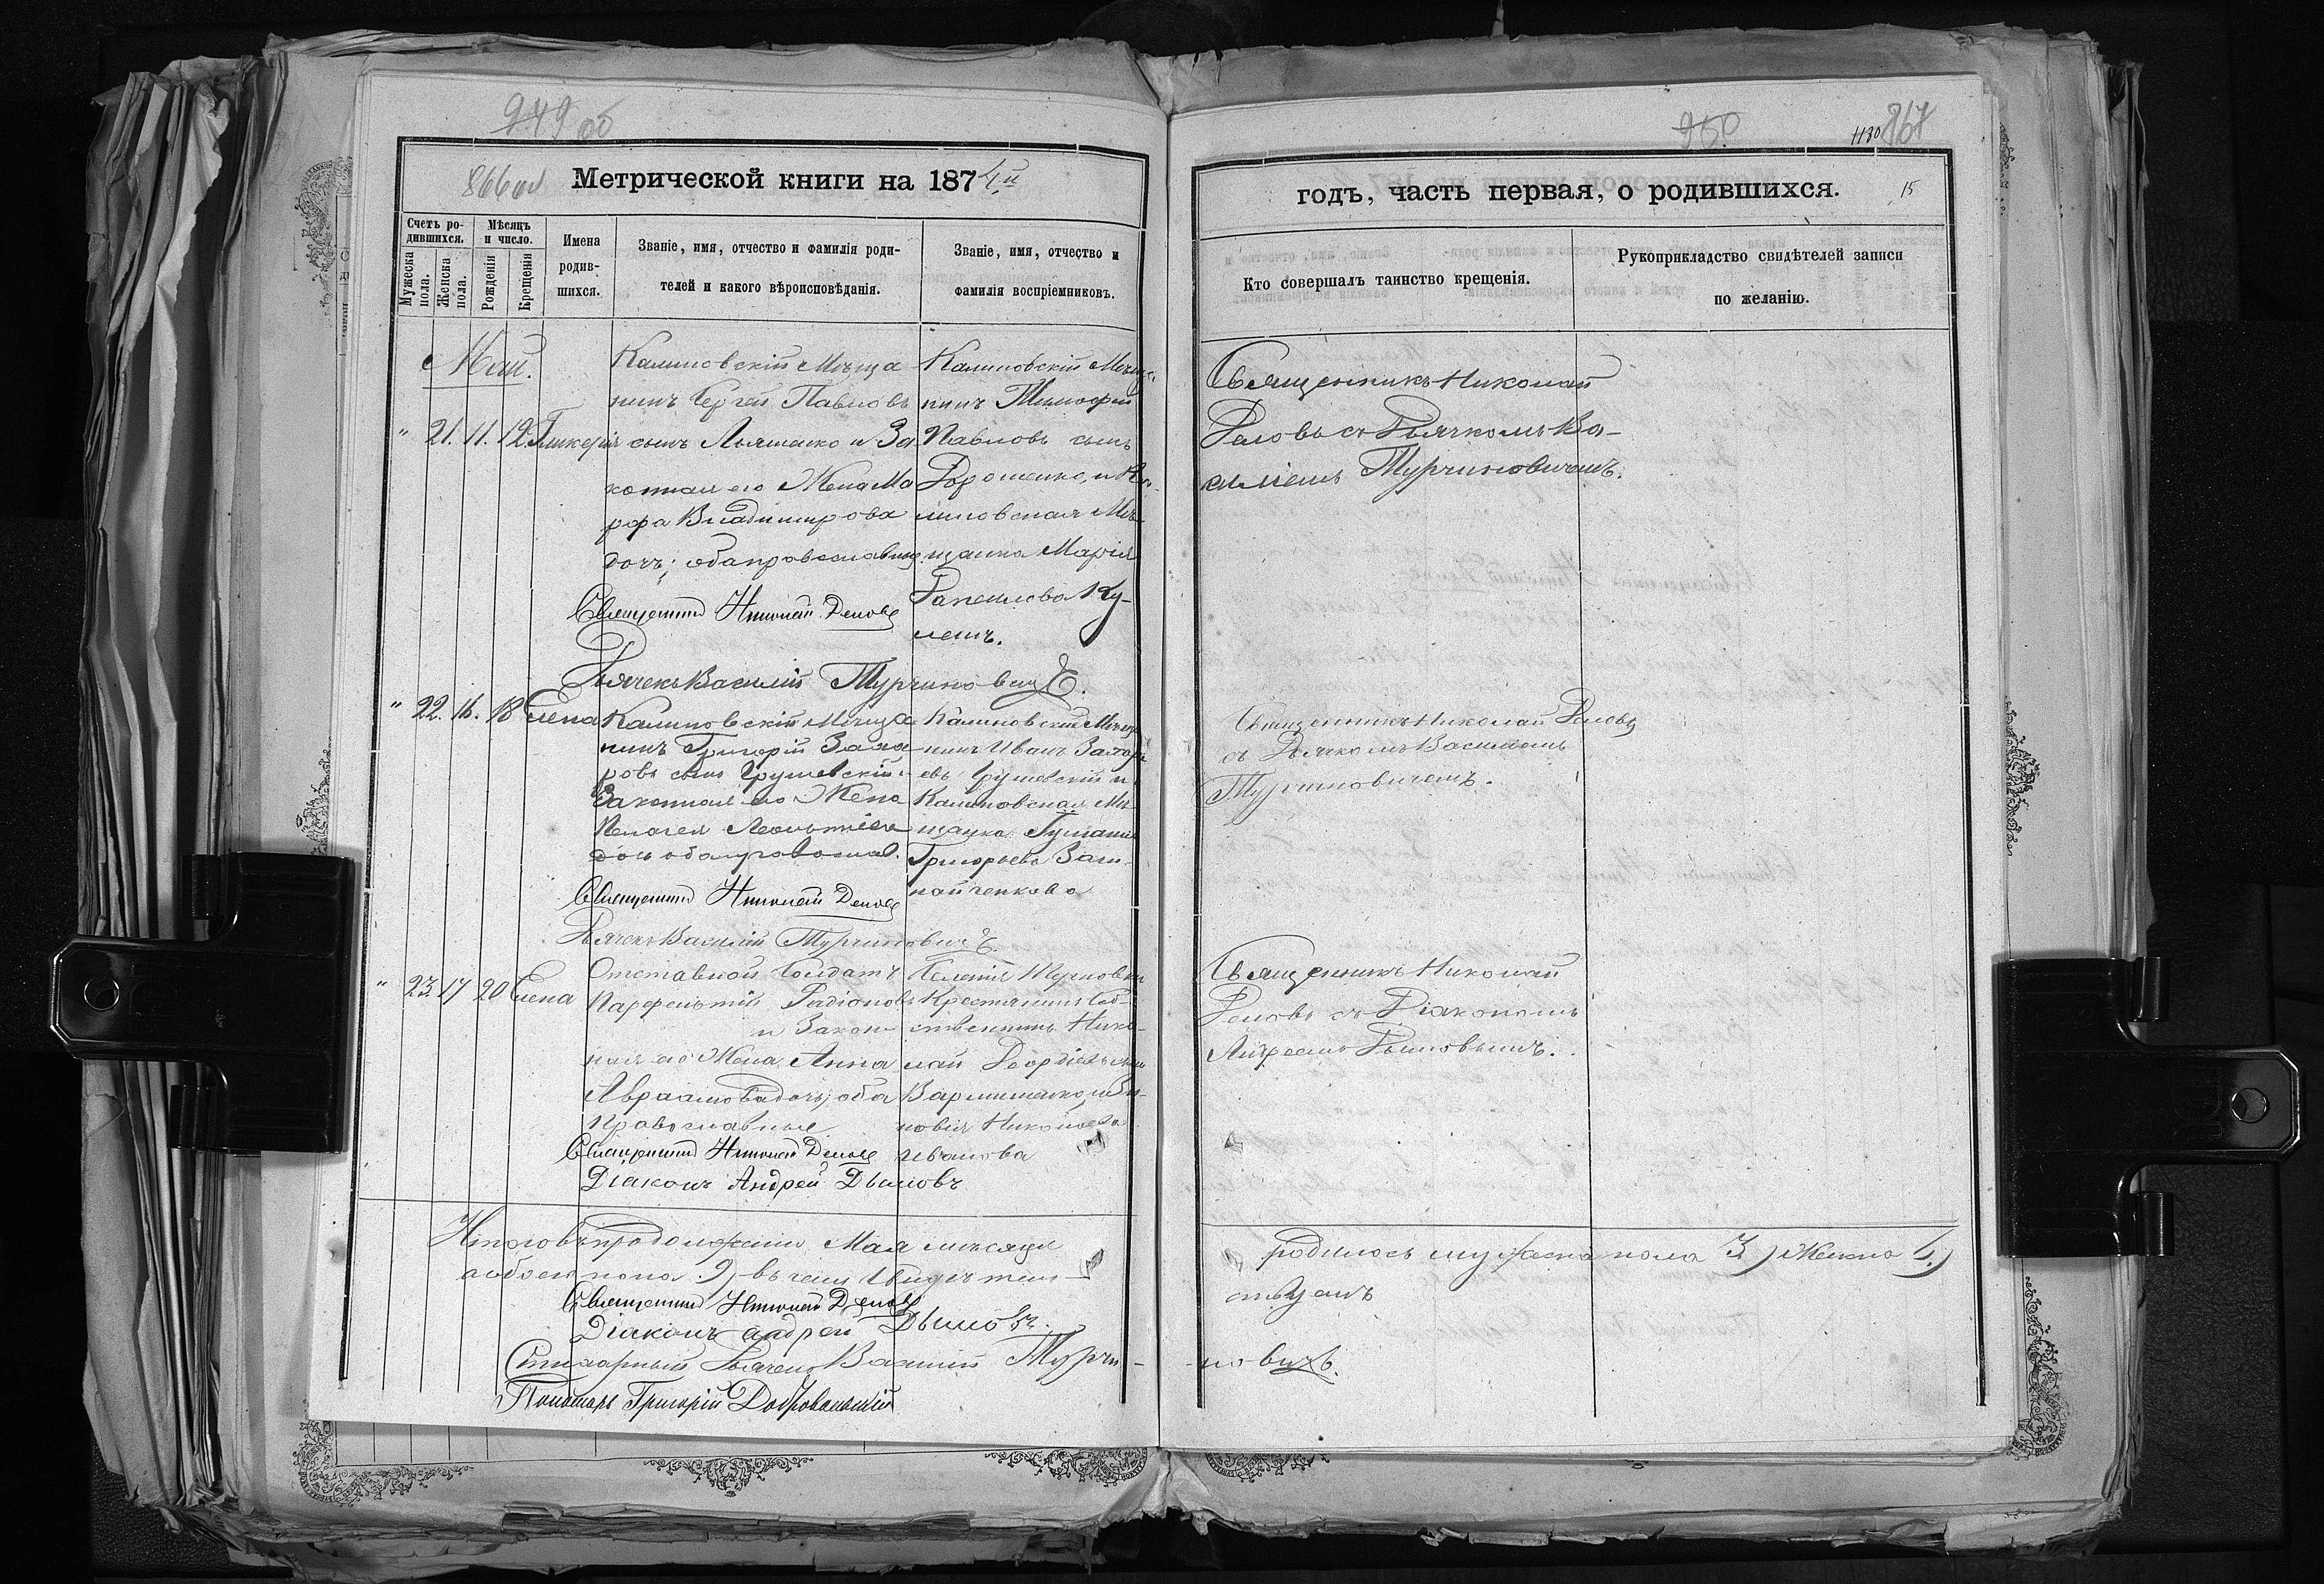 949 об
866 об Метрической книги на 1874й
Счетъ ро-
дившихся.
Мѣсяцъ
и число.
Мужеска
пола.
Женска
пола.
Рожденія
Крещенія
Имена
родив-
шихся.
Званіе, имя, отчество и фамилія роди-
телей и какого вѣроисповѣданія.
Званіе, имя, отчество и
фамилія воспріемниковъ.
Май.
" 21. 11. 12.
Калиновскій Мѣща
нинъ Сергей Павловъ
сынъ Ляшенко и За
конная его Жена Ма
Владимирова
дочь; оба православные
Священникъ Николай
Дячекъ Василій Турчиновичъ.
Калиновскій Мѣща
нинъ Тимофей
Павловъ сынъ
Дорошенко, и Ка-
линовская Мѣ
щанка Марія
Ку-
лешъ.
" 22. 16. 18 Елена
Калиновскій Мѣща
нинъ Григорій Заха
ровъ сынъ Грушевскій и
Законная его Жена
Пелагея Леонтіева
дочь оба православ.
Священникъ Николай
Дячекъ Василій Турчиновичъ.
Калиновскій Мѣща
нинъ Иванъ Захарі
евъ Грушевскій и
Калиновская Мѣ
щанка
Григорьева
" 23. 17 20 Елена
Отставной Солдатъ
Парфентій Радіоновъ
и Закон-
ная его Жена Анна
Авраамова дочь; оба
Православные
Священникъ Николай
Діаконъ Андрей Дымовъ
Крестьянинъ Соб-
ственникъ Нико-
лай
и Зи-
новія Николаева
Иванова
Итого въ продолженіи Мая мѣсяца
а обоего пола 9, въ чемъ свидѣтель-
Священникъ Николай
Діаконъ Андрей Дымовъ.
Стихарный Дячекъ Василій Турчи-
Пономарь Григорій Добровольскій
950.
1180 867
годъ, часть первая, о родившихся. 15
Кто совершалъ таинство крещенія.
Рукоприкладство свидѣтелей записи
по желанію.
Священникъ Николай
съ Дячкомъ Ва-
силіемъ Турчиновичемъ.
Священникъ Николай
съ Дячкомъ Василіемъ
Турчиновичемъ.
Священникъ Николай
съ Діакономъ
Андреемъ Дымовымъ.
родилось мужеска пола 3, Женска
ствуемъ
-новичъ.